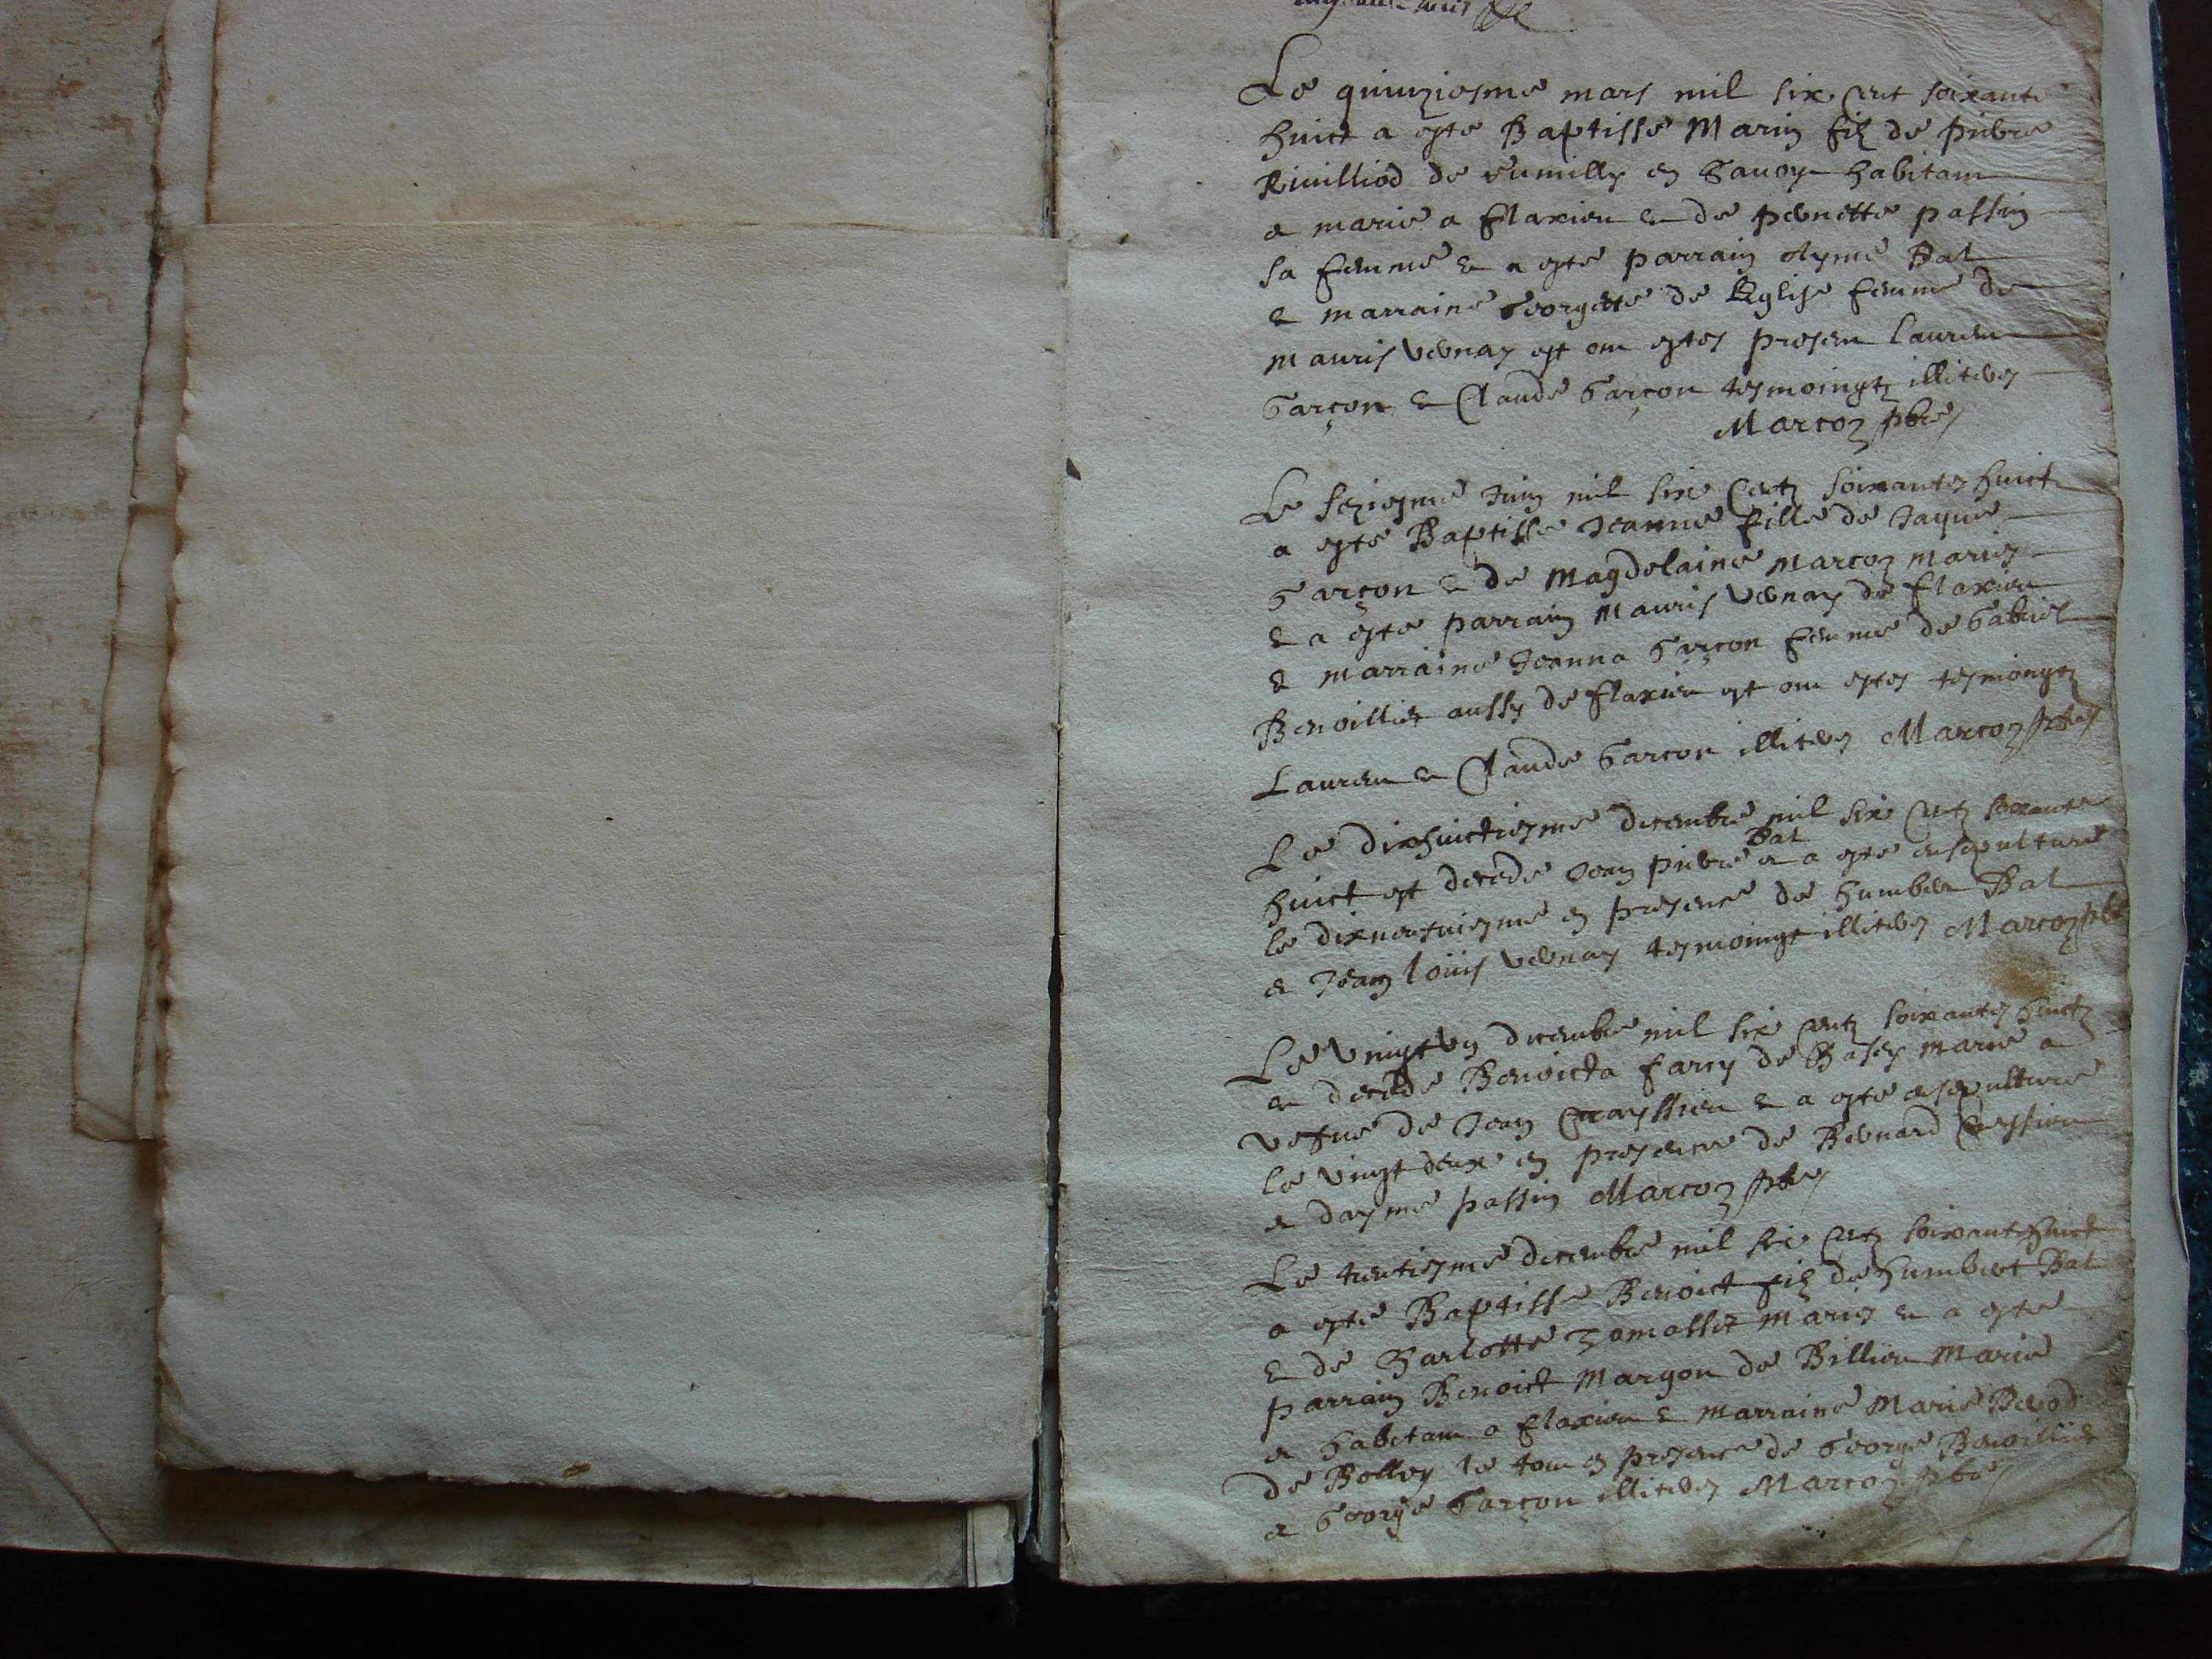 Le quinziesme mars mil six cent soixante
huict a este Baptisse Marin filz de pierre
Rivilliod de rumilly en Savoye habitant
a marié a flaxieu et de pernette passin
sa femme et a este parrain Aymé Bal
et marraine Georgette de Eglise femme de
mauris vernay et ont estes present laurent
Garçon et Claude Garçon tesmoingtz illiteres
Marcoz pbre
Le seziesme Juin mil sixe centz soixantes huict
a este Baptisse Jeanne fille de Jaque
Garçon et de Magdelaine Marcoz maries
et a este parrain Mauris vernay de flaxieu
et marraine Jeanna Garçon femme de Gabriel
Benoillier aussy de flaxieu et ont estes tesmoingtz
Laurent et Claude Garcon illiteres Marcoz pbre
Le dixhuictiesme decembre mil six centz soixante
huict est decede Jean pierre Bal et a este ensepulturé
le dixneufuiesme en presence de humbert Bal
et Jean louis vernay tesmoingt illiteres Marcoz pbre
Le vingt un decembre mil six centz soixantes huictz
et decede Benoicta farcy de marie a
vefue de Jean et a este ensepulturee
le vingt deux en presence de Bernard
et daymé passin Marcoz pbre
Le trentiesme decembre mil six centz soixantehuict
a este Baptisse Benoict filz de humbert Bal
et de Charlotte maries et a este
parrain Benoict Margon de Billieu Marie
et habitant a flaxieu et marraine Marie
de le tout en presence de George Benoillier
et George Garçon illiteres Marcoz pbre